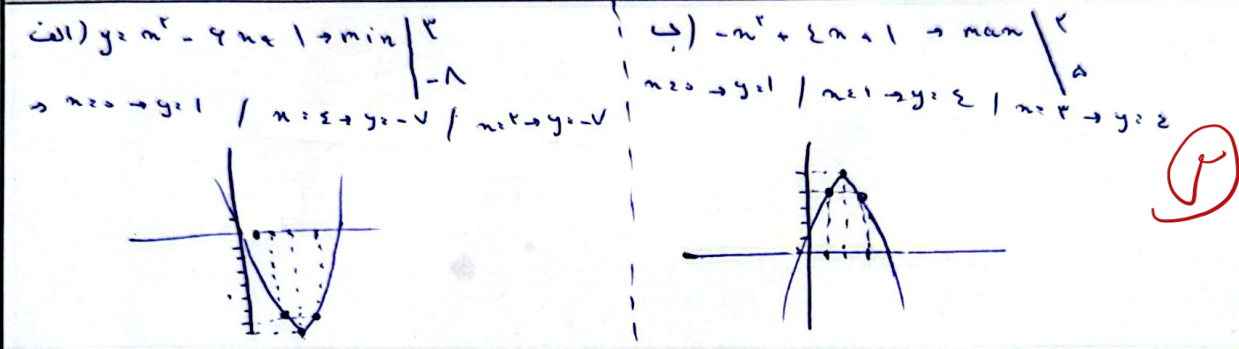 الف) y = x² - ۶x + ۱ → min | ۳
-۸
→ x=۰ → y=۱ / x=۴ → y=-۷ / x=۲ → y=-۷
ب) -x² + ۴x + ۱ → max | ۲
۵
x=۰ → y=۱ / x=۱ → y=۴ / x=۳ → y=۴
۲